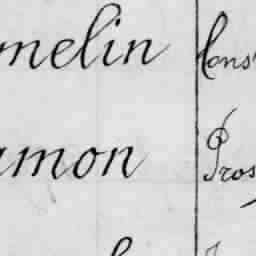 melin Cons
amon Pros